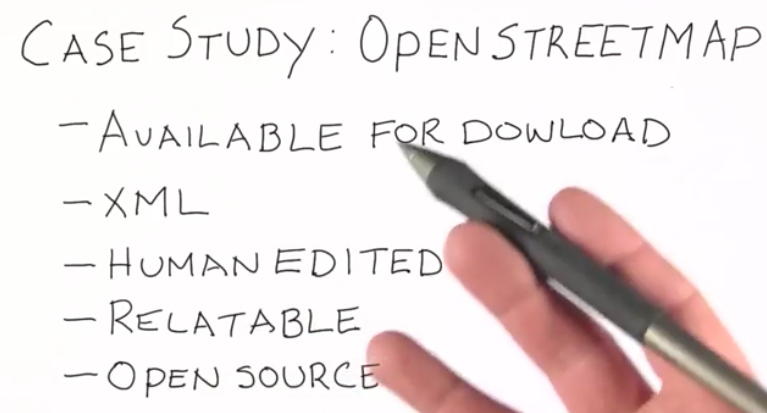 CASE STUDY: OPENSTREETMAP
- AVAILABLE FOR DOWLOAD
- XML
- HUMAN EDITED
- RELATABLE
- OPEN SOURCE